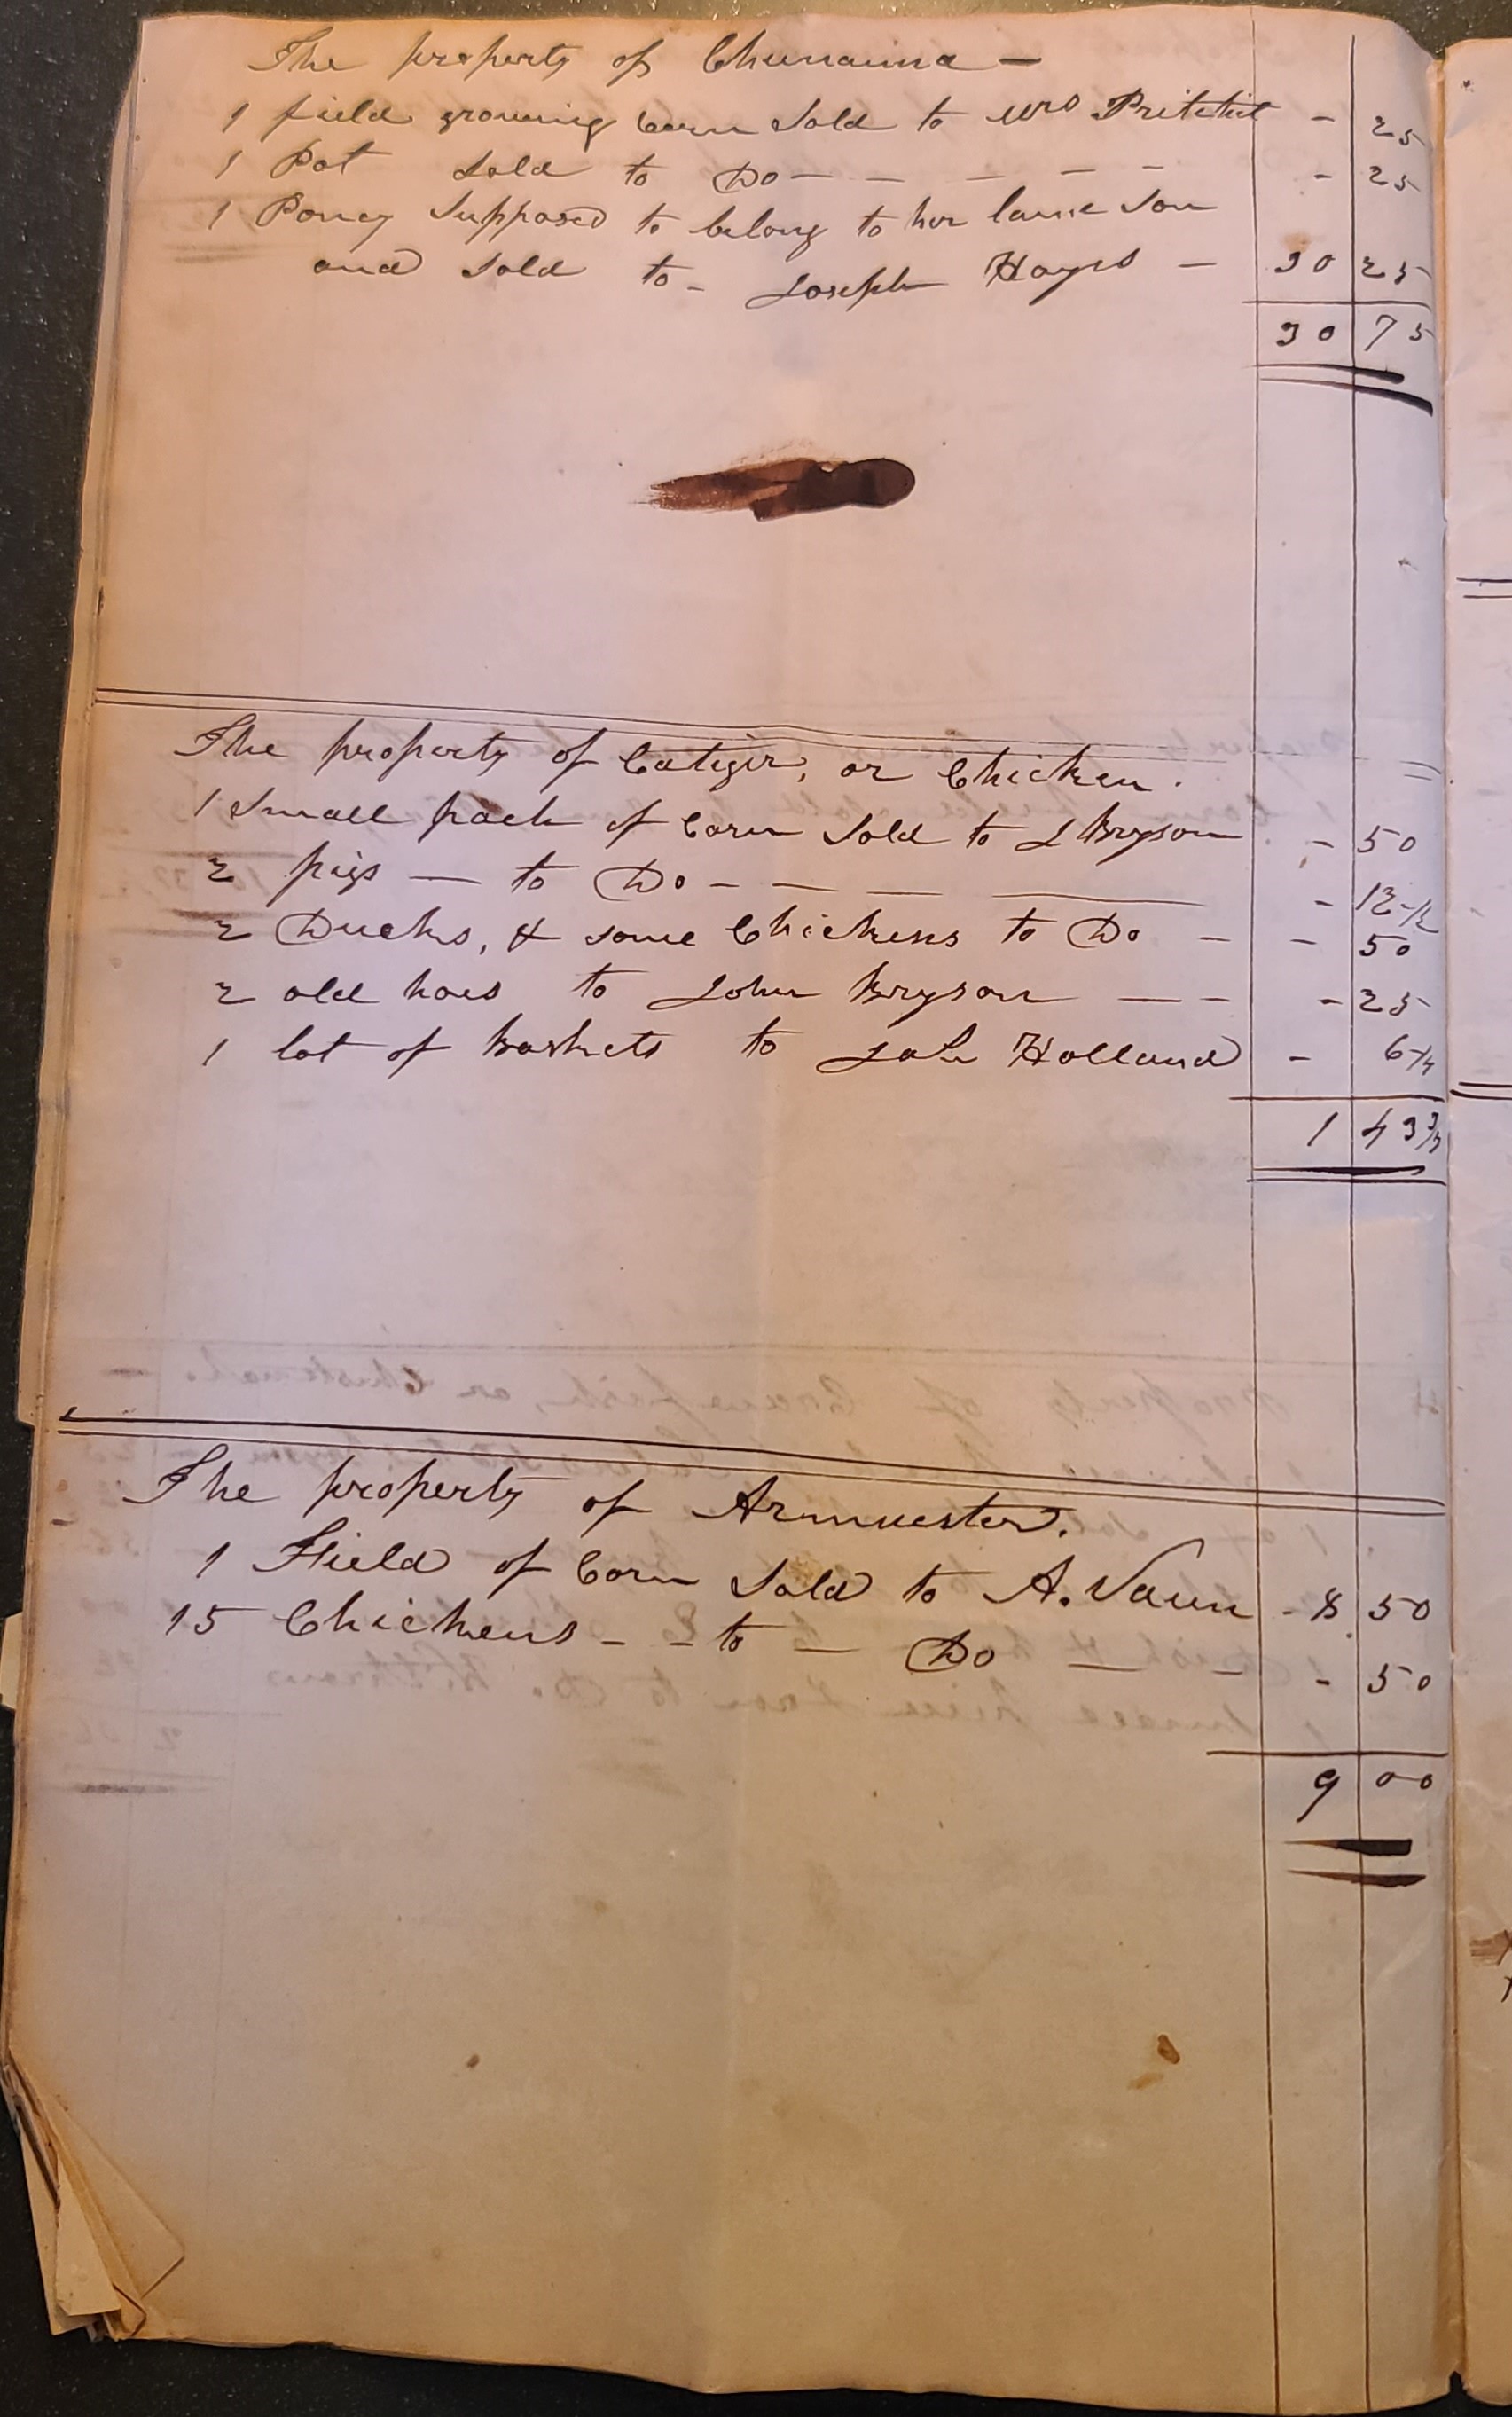 The property of Chunauna —
1 field growing Corn Sold to Mrs Pritchet - 25
1 Pot Sold to Do — — — — — - 25
1 Poney Supposed to belong to her lame Son
and Sold to - Joseph Hayes — 30 25
30 75
The property of Catiger, or Chicken.
1 Small patch of Corn Sold to J Bryson - 50
2 pigs — to Do - — — — - 12 1/2
2 Ducks, & some Chickens to Do - - 50
2 old hoes to John Bryson — - - 25
1 lot of baskets to Holland - 6 1/4
1 43 3/4
The property of
1 Field of Corn Sold to A. Vaun - 8 50
15 Chickens - - to — Do — - - 50
9 00